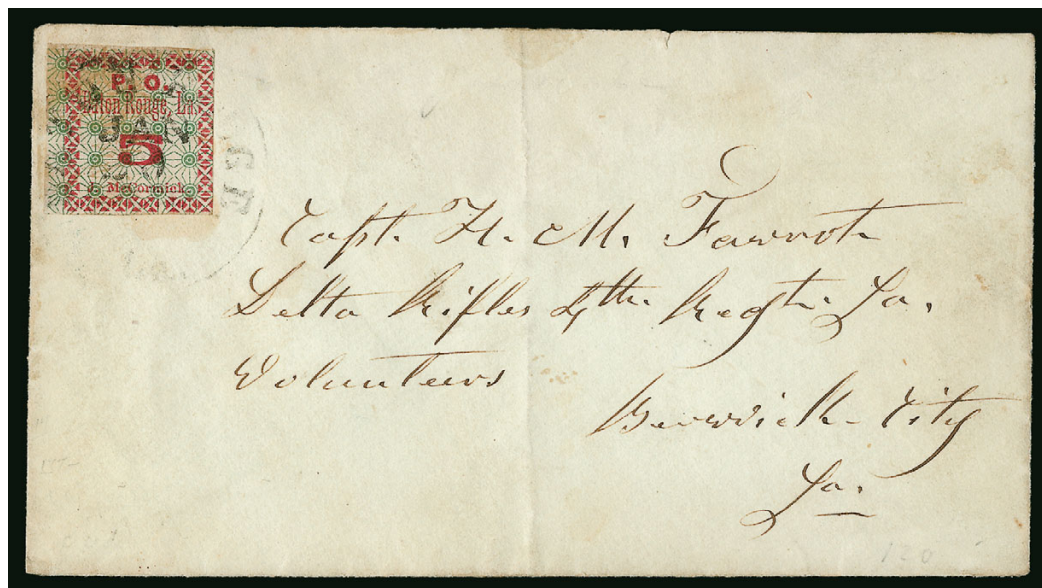 P. O.
Baton Rouge, La.
JAN
5
J. McCormick
GE
Capt. H. M. Favrot
Delta Rifles 4th Regt. La.
Volunteers
Berwick City
La.
120